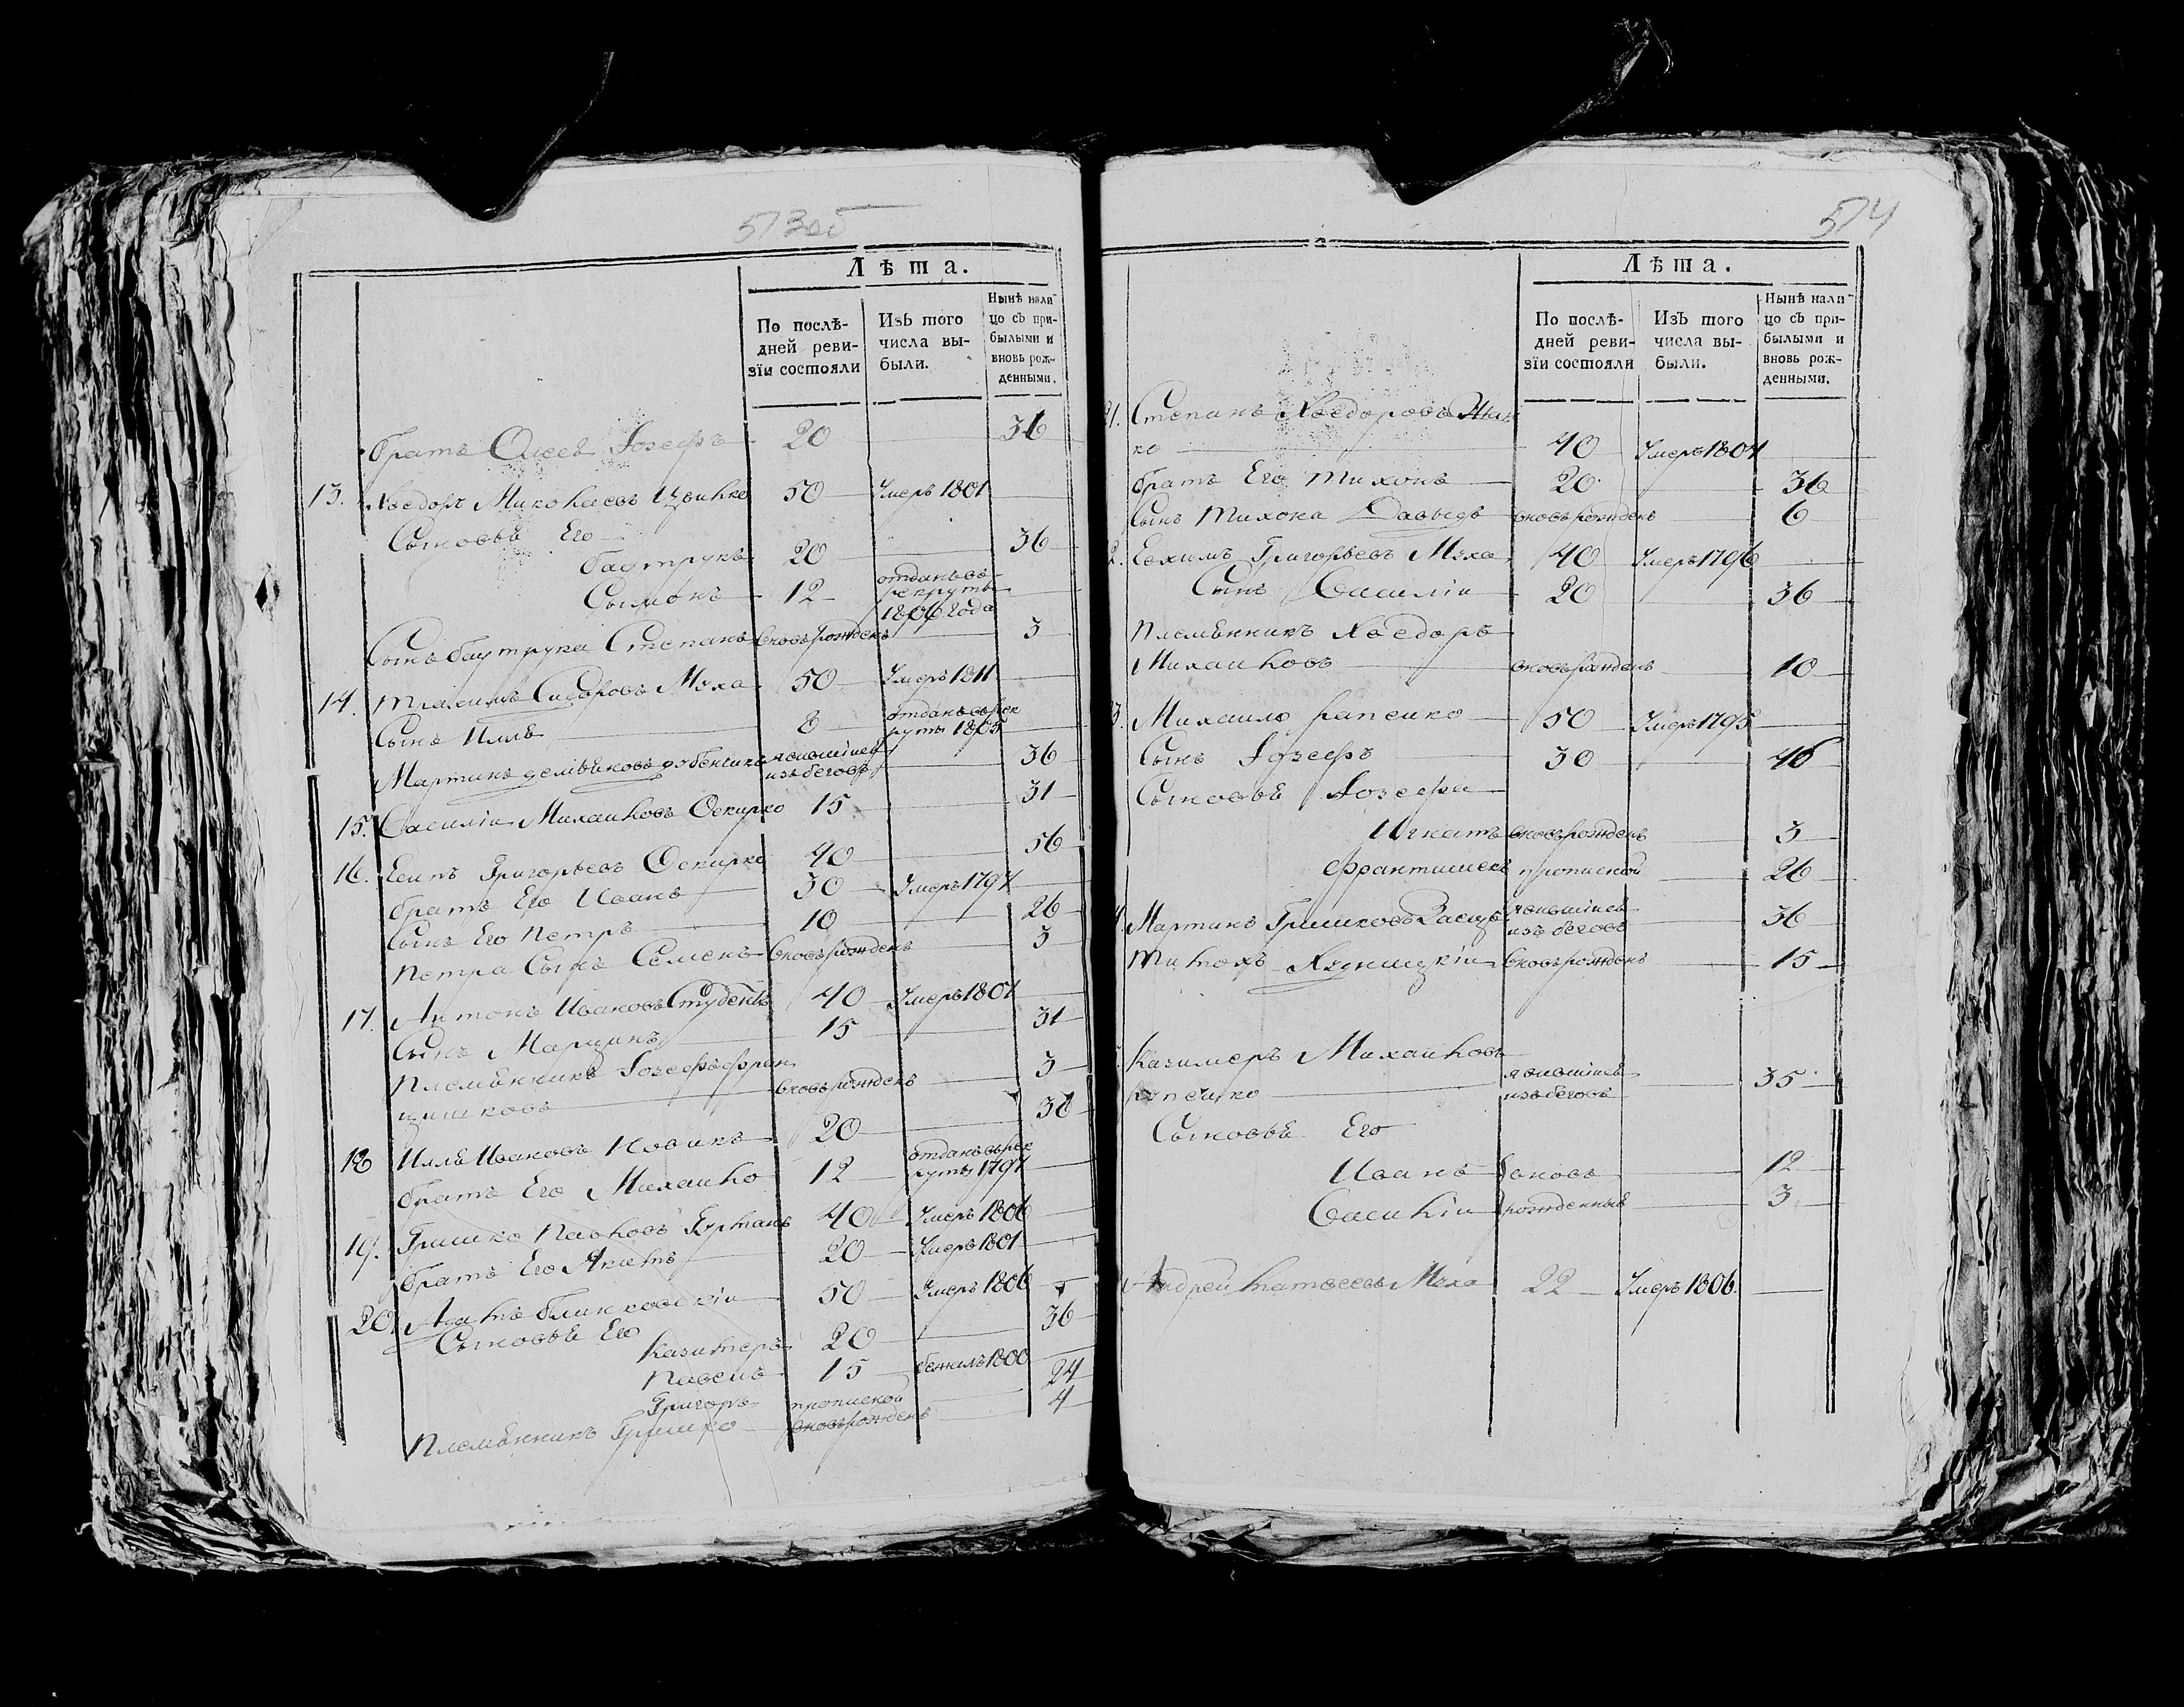 573об
Лѣта.
По послѣдней ревизіи состояли
Изъ того числа выбыли.
Нынѣ налицо съ прибылыми и вновь рожденными.
братъ Олесѣ Іозефъ 20 36
13. Хведоръ Миколаевъ 50 Умеръ 1801
Сыновьѣ Его
бавтрукъ 20 36
Сымонъ 12 отданъ въ рекруты 1806 года
Сынъ бавтрука Степанъ вновь рожденъ 3
14. Сидоровъ Муха 50 Умеръ 1811
Сынъ Иллѣ 8 отданъ въ рекруты 1805
Мартинъ явившійся изъ беговъ 36
15. Василіи Михайловъ Оскирко 15 31
16. Есипъ Григорьевъ Оскирко 40 56
братъ Его Иванъ 30 Умеръ 1797
Сынъ Его Петръ 10 26
Петра Сынъ Семенъ вновь рожденъ 3
17. Антонъ Ивановъ Студентъ 40 Умеръ 1807
Сынъ Марцинъ 15 31
Племѣнникъ Іозефъ Францишковъ вновь рожденъ 3
18 Иллѣ Ивановъ Новикъ 20 36
братъ Его Михайло 12 отданъ въ рекруты 1797
19. Гришко Павловъ 40 Умеръ 1806
братъ Его 20 Умеръ 1801
20. Адамъ 50 Умеръ 1806
Сыновьѣ Его
Казимеръ 20 36
Павелъ 15 бежалъ 1800
Григоръ прописной 24
Племѣнникъ Гришко вновь рожденъ 4
574
Лѣта.
По послѣдней ревизіи состояли
Изъ того числа выбыли.
Нынѣ налицо съ прибылыми и вновь рожденными.
21. Степанъ Хведоровъ
ко 40 Умеръ 1807
братъ Его Тихонъ 20 36
Сынъ Тихона Давыдъ вновь рожденъ 6
2. Евхимъ Григорьевъ Муха 40 Умеръ 1796
Сынъ Василіи 20 36
Племѣнникъ Хведоръ
Михайловъ вновь рожденъ 10
3. Михайло рапейко 50 Умеръ 1795
Сынъ Іозефъ 30 46
Сыновьѣ Іозефа
Игнатъ вновь рожденъ 3
Франтишекъ прописной 26
4. Мартинъ Гришковъ явившійся изъ беговъ 36
вновь рожденъ 15
Казимеръ Михайловъ
явившійся изъ беговъ 35
Сыновьѣ Его
Иванъ вновь 12
Василіи рожденныѣ 3
Андрей Матвеевъ Муха 22 Умеръ 1806.